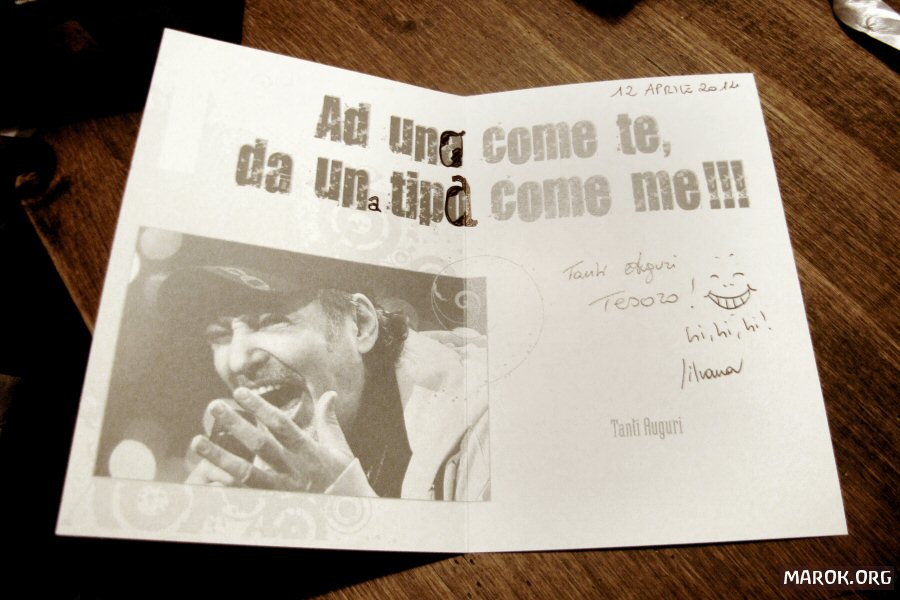 12 APRILE 2014
Ad una come te,
da una tipa come me!!!
Tanti auguri
Tesoro!
hi, hi, hi!
Silvana
Tanti Auguri
MAROK.ORG